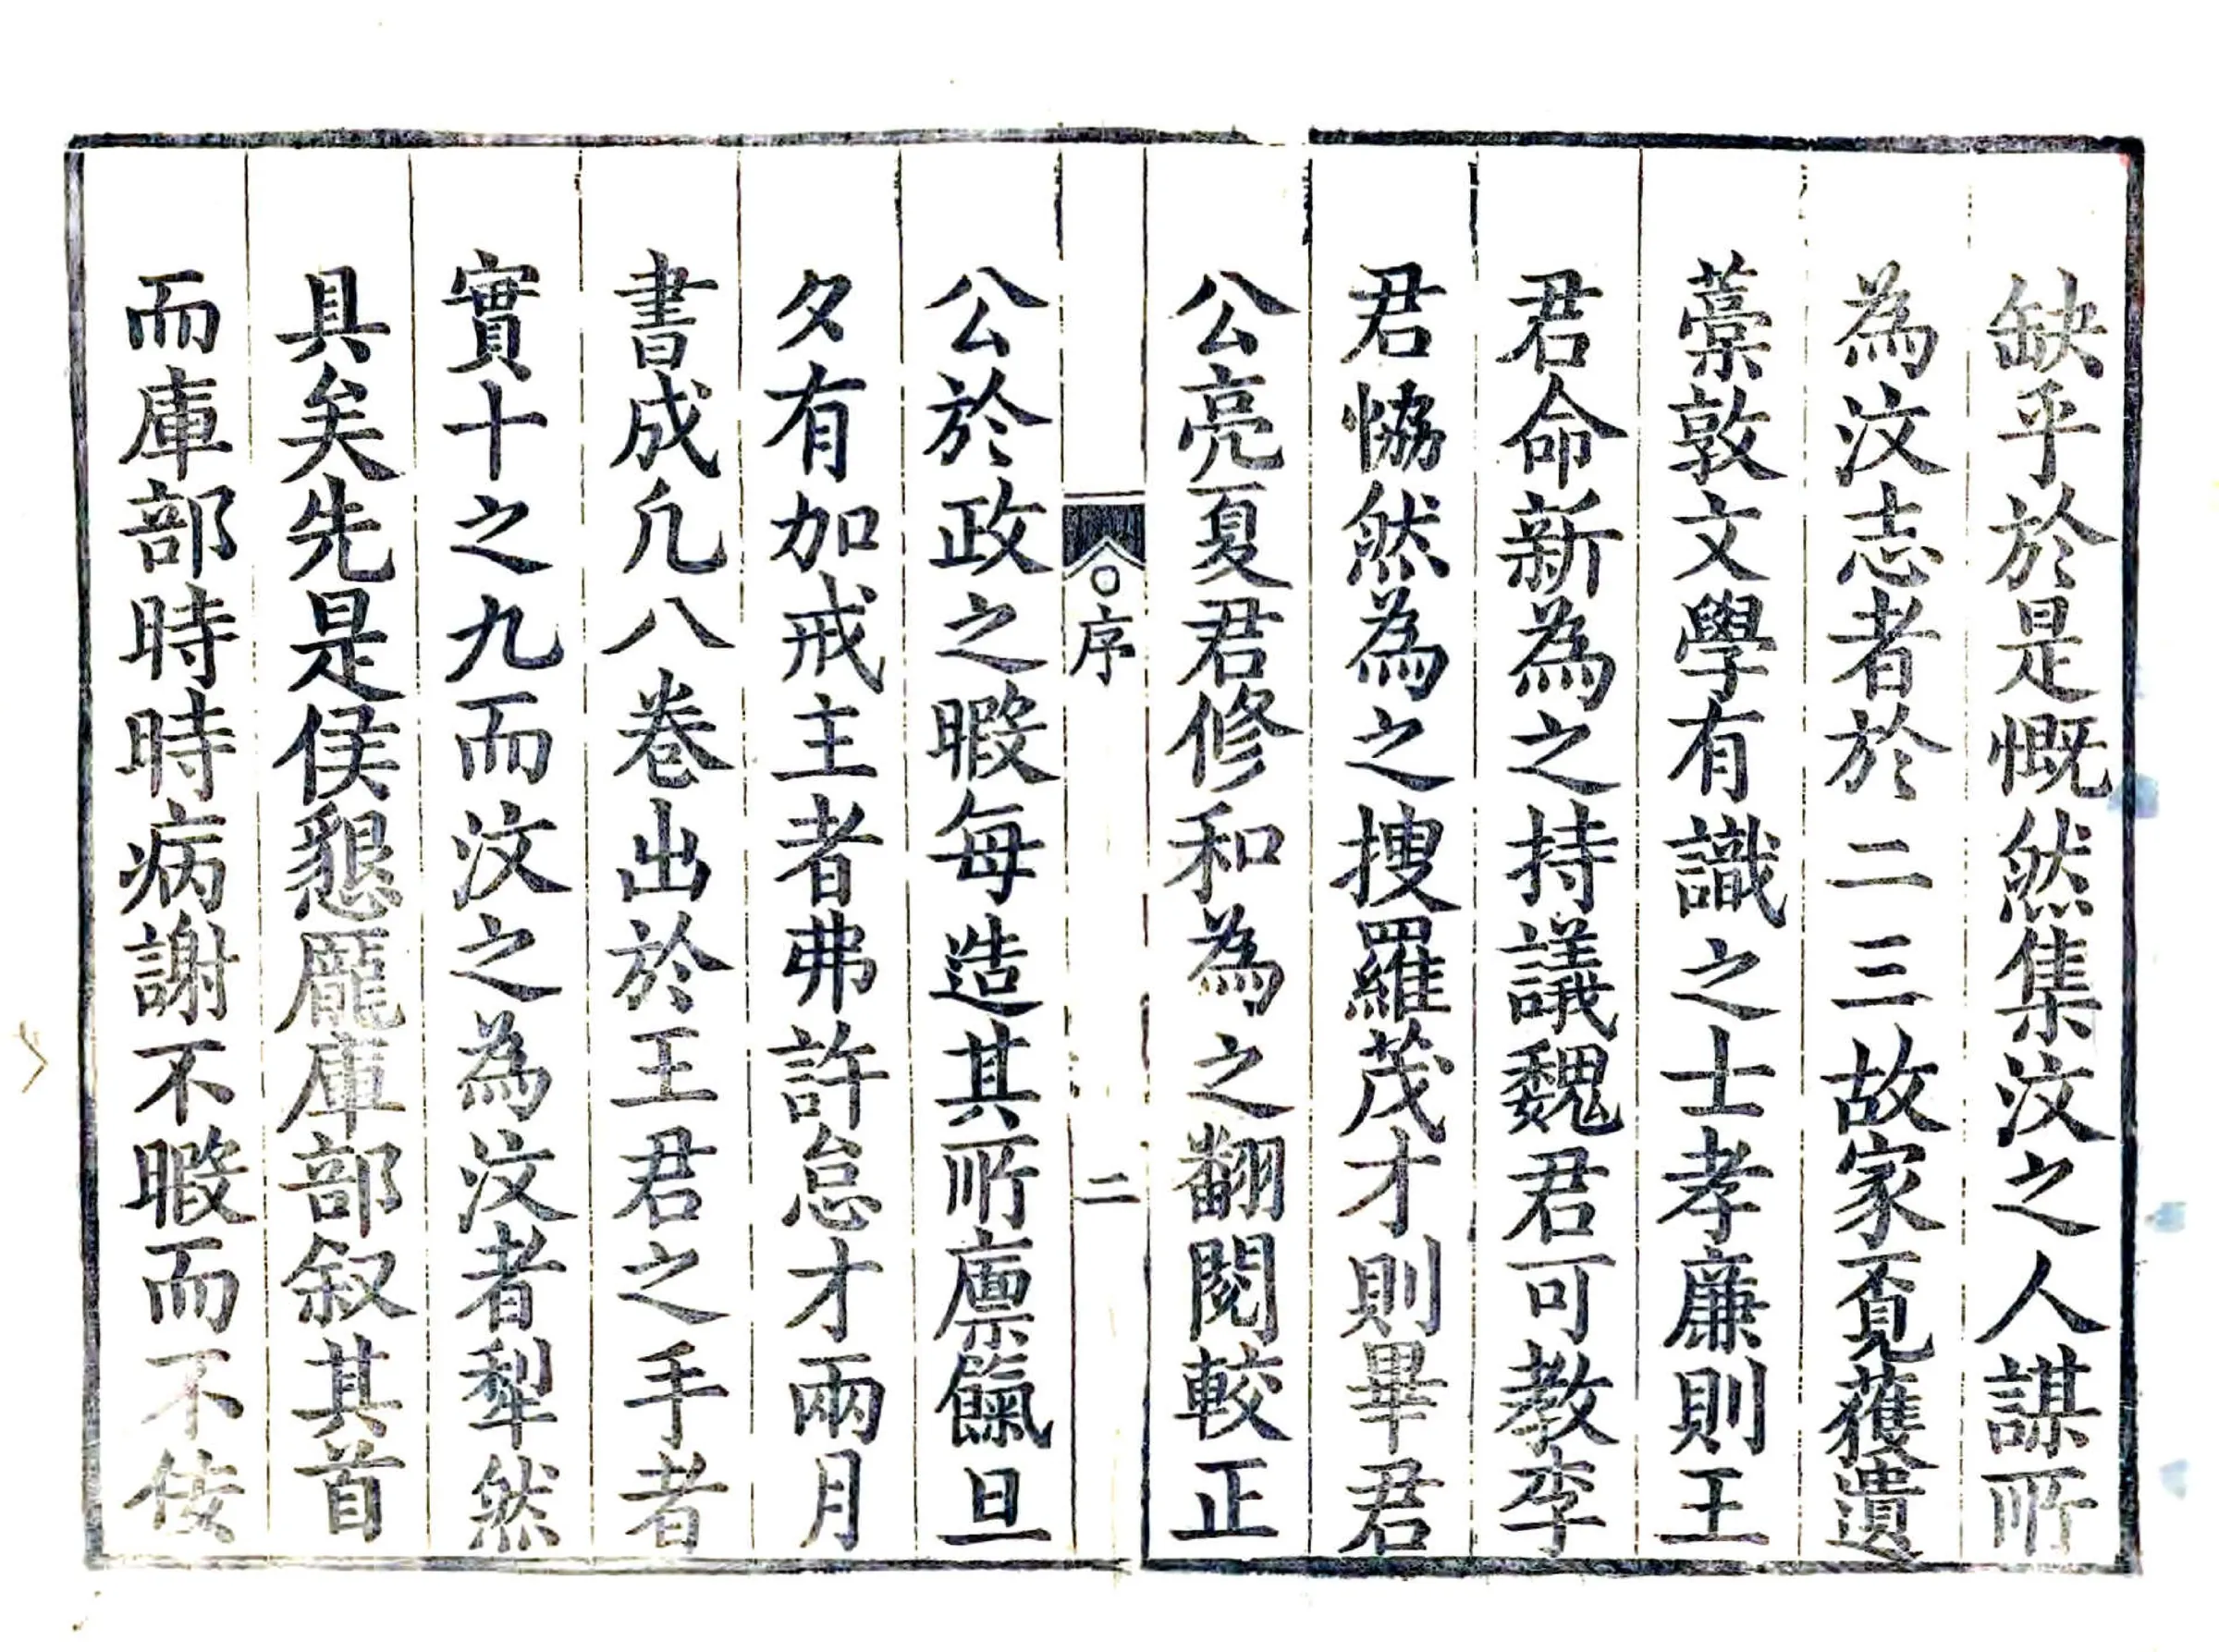 缺乎於是慨然集汶之人謀所
為汶志者於二三故家覔獲遺
藁敦文學有識之士孝廉則王
君命新為之持議魏君可教李
君恊然為之搜羅茂才則畢君
公亮夏君修和為之翻閱較正
序
二
公於政之暇每造其所廪餼旦
夕有加戒主者弗許怠才兩月
書成凢八卷出於王君之手者
實十之九而汶之為汶者犁然
具矣先是侯懇龎庫部叙其首
而庫部時時病謝不暇而不佞